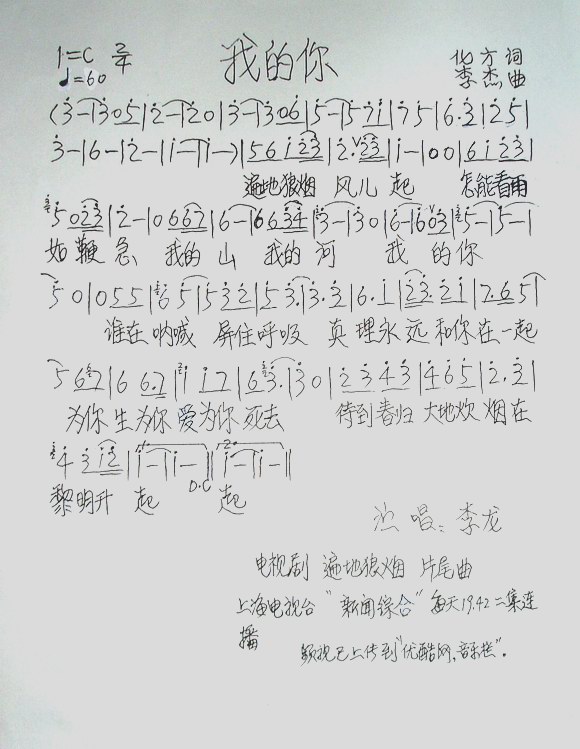 1=C 2/4
♩=60
我的你
化方 词
李杰 曲
(3-|305|2-|20|3-|306|5-|571|75|6·3|25|
3-|6-|2-|1-|1-)|56123|2·23|1-|00|6123|
遍地狼烟 风儿 起 怎能看雨
5023|2-|0667|6-|6634|3-|30|6-|603|5-|5-|
如鞭急 我的 山 我的 河 我 的你
50|055|65|532|53·|3·3|6·1|23·21|7·65|
谁在呐喊 屏住呼吸 真理永远和你在一起
567|66·7|117|63·|30|2343|465|2·3|
为你生为你爱为你死去 待到春归 大地炊烟在
4312|1-|1-||1-|1-||
D.C
黎明升 起 起
演唱：李龙
电视剧 遍地狼烟 片尾曲
上海电视台“新闻综合”每天19.42二集连
播
频视已上传到“优酷网,音乐栏”。